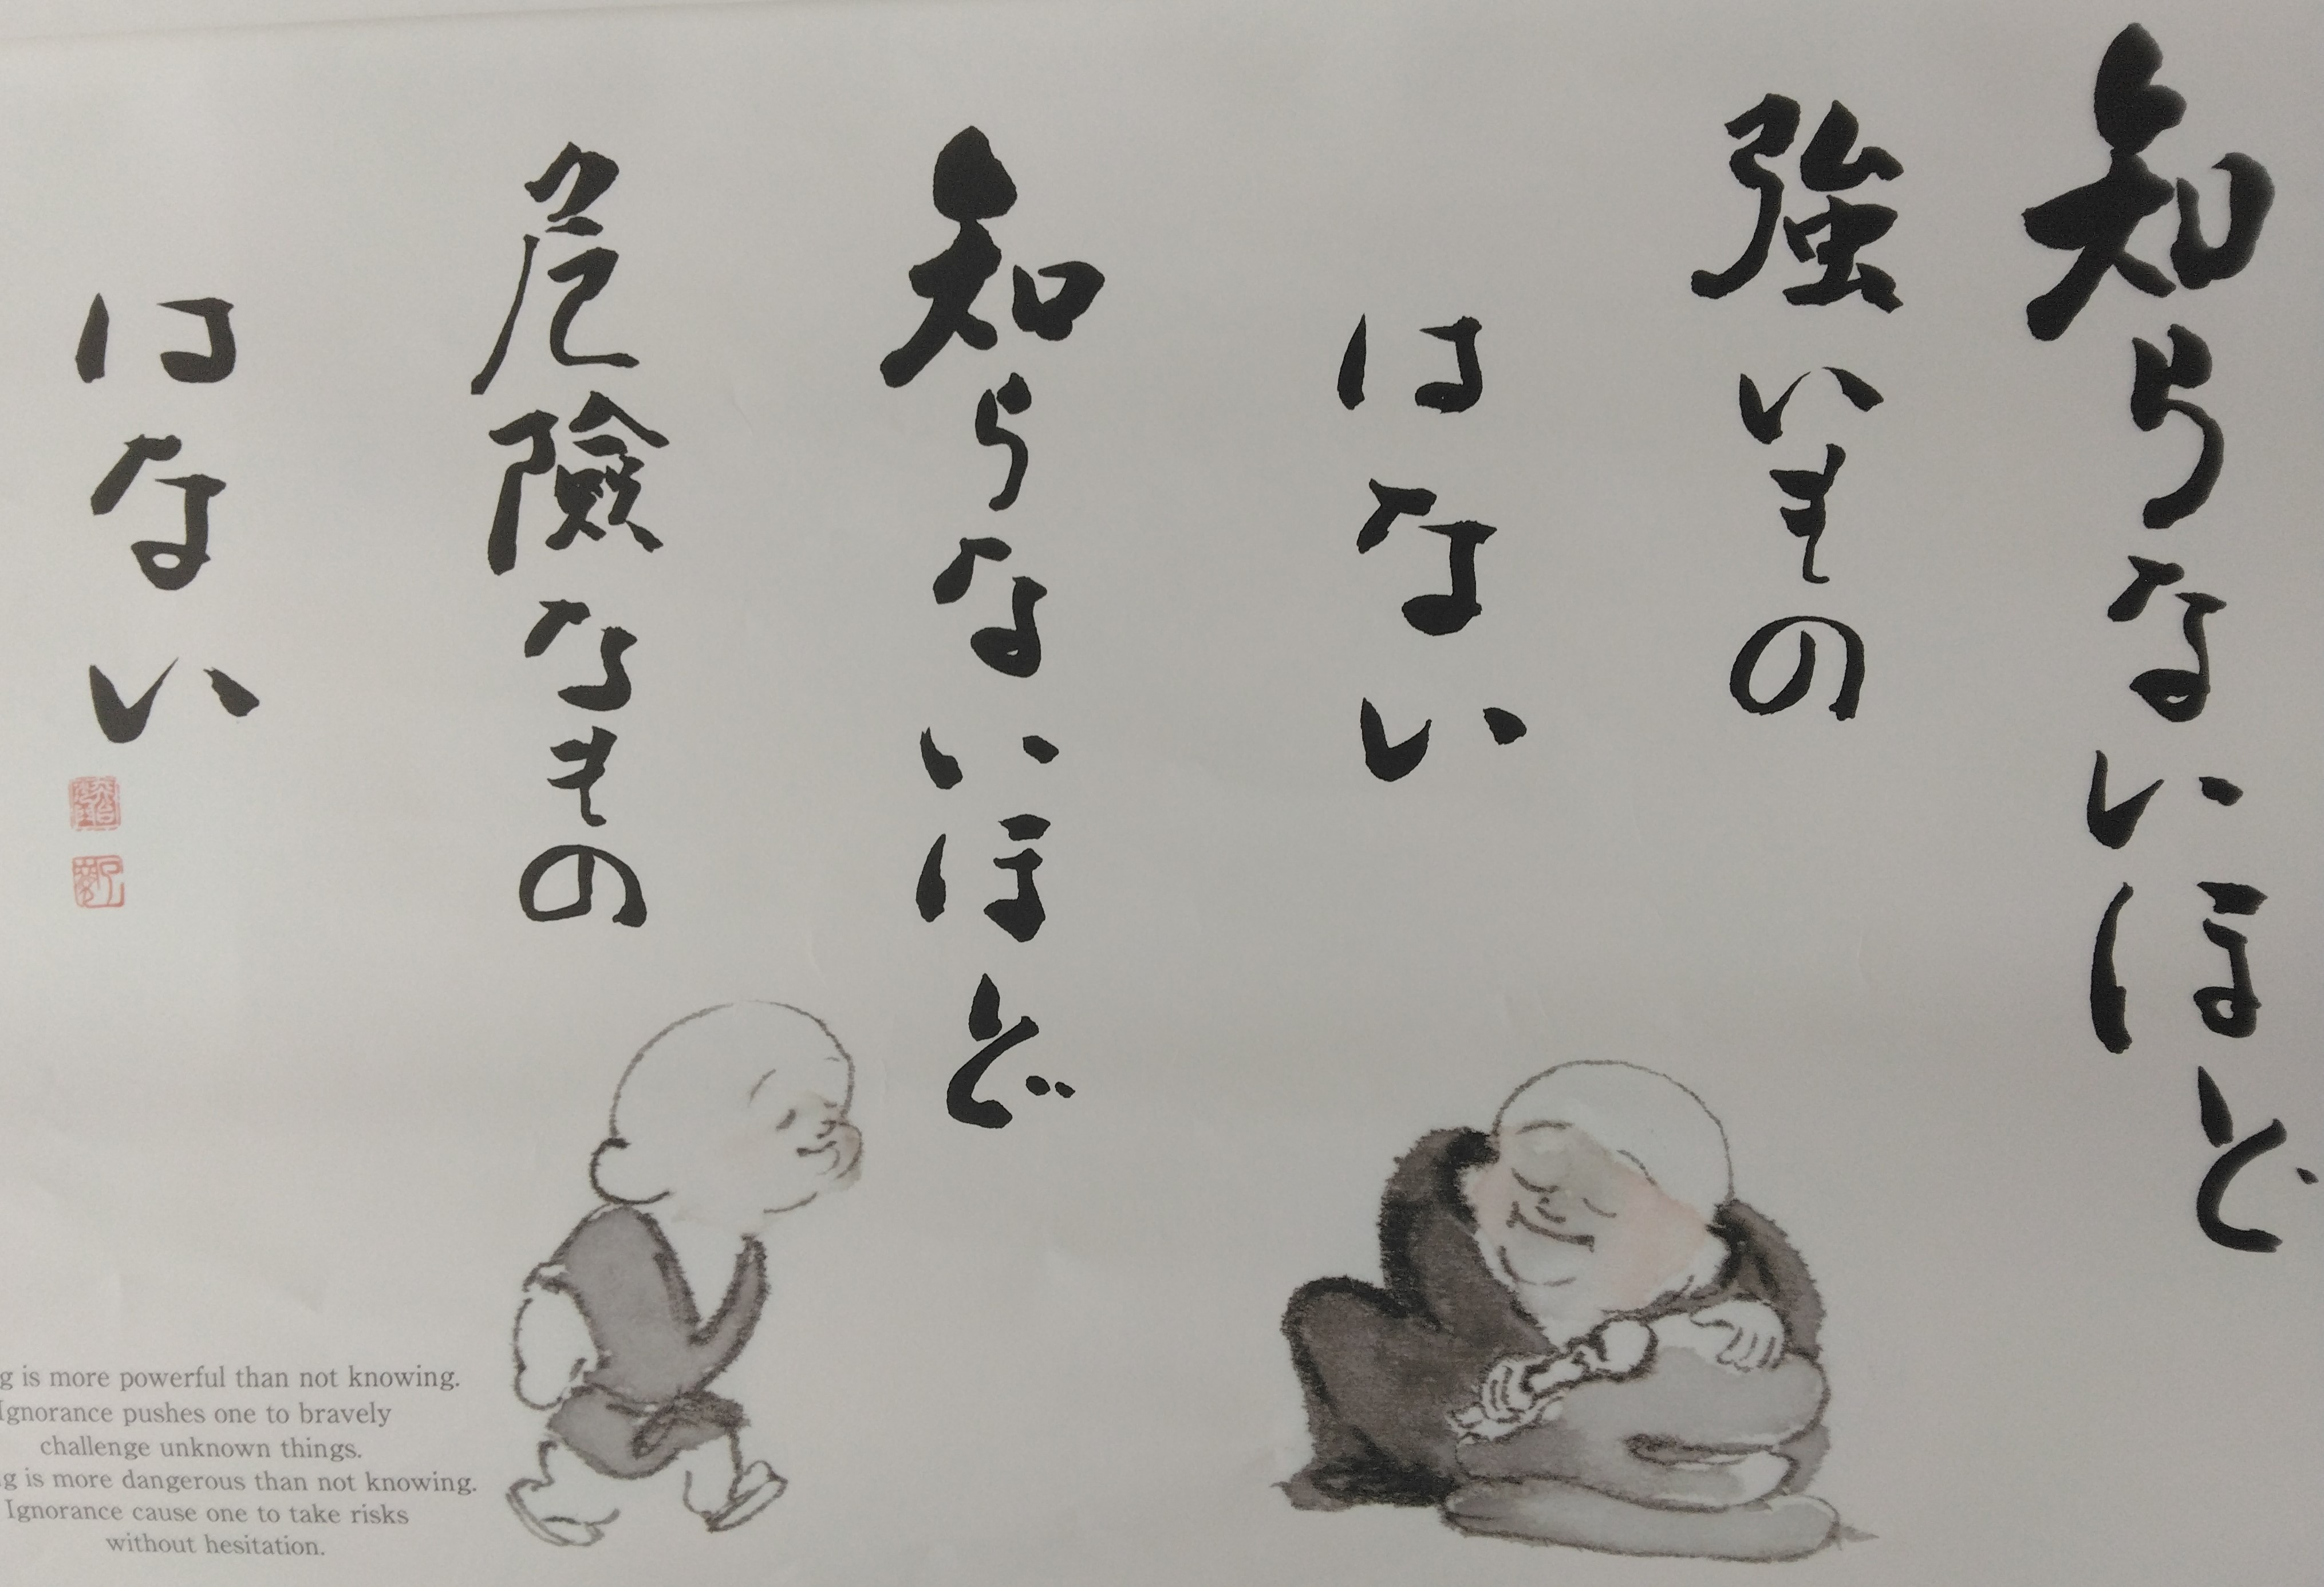 知らないほど
強いもの
はない
知らないほど
危険なもの
はない
g is more powerful than not knowing.
Ignorance pushes one to bravely
challenge unknown things.
g is more dangerous than not knowing.
Ignorance cause one to take risks
without hesitation.